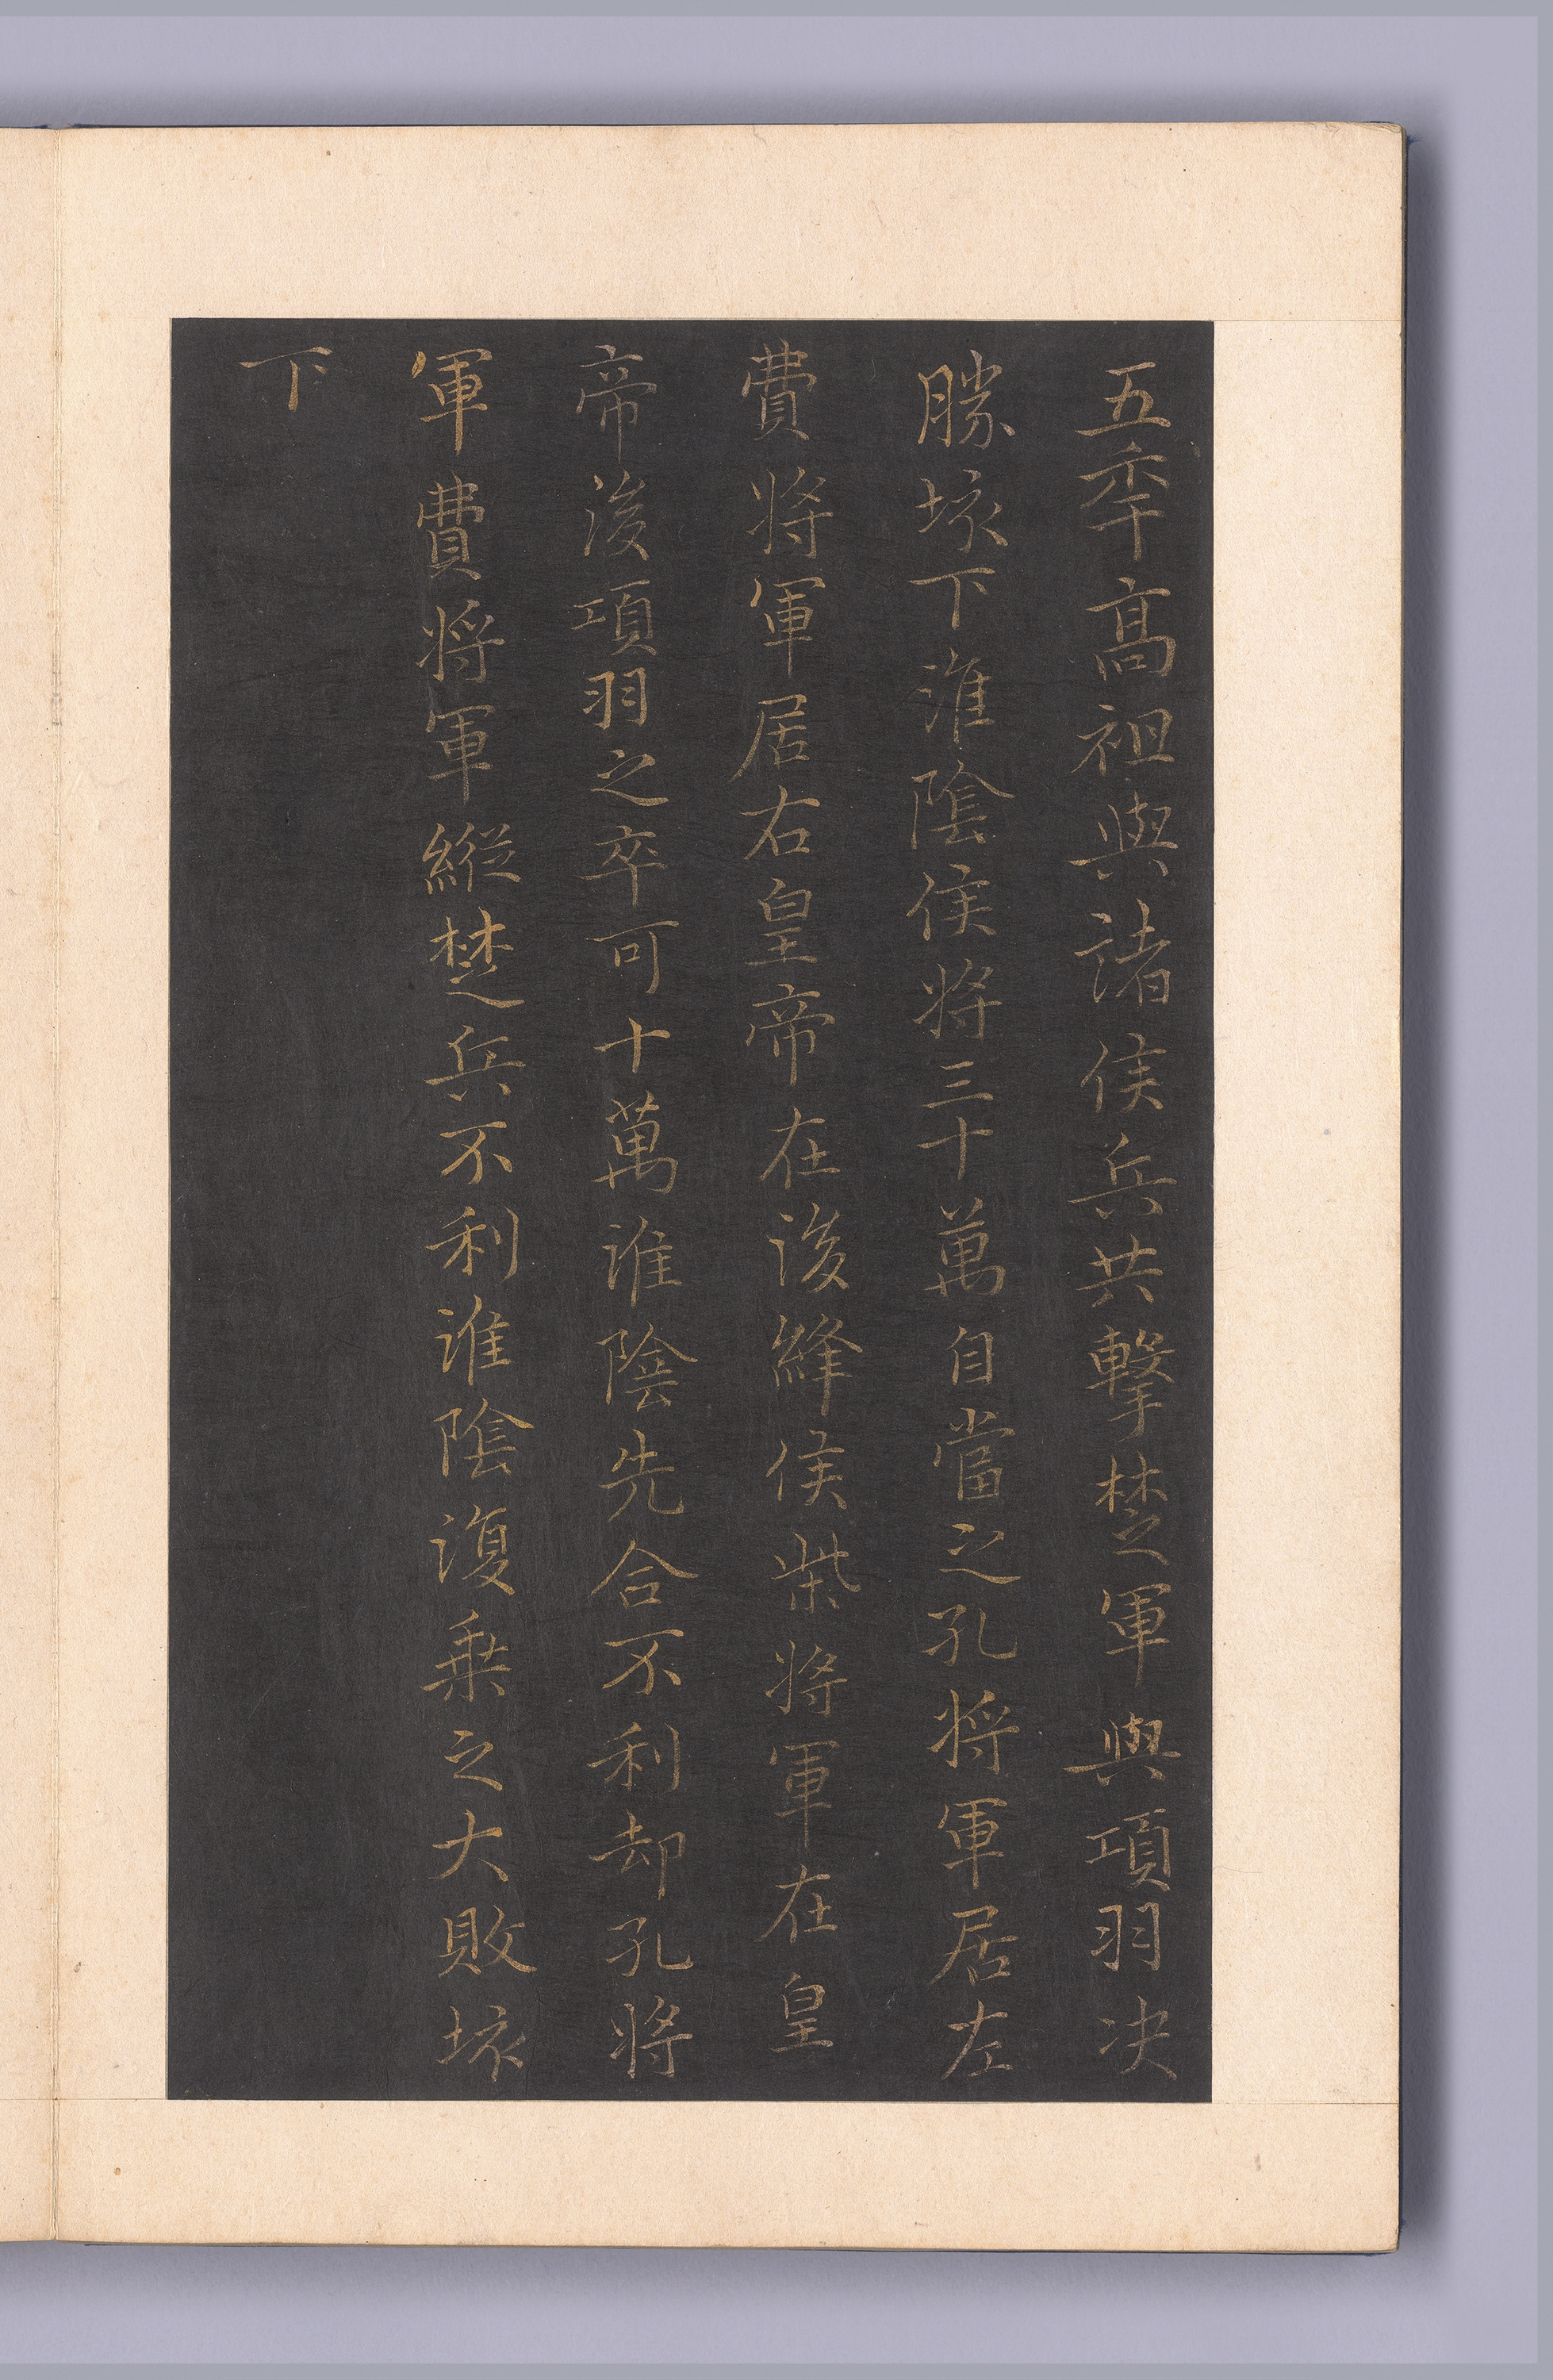 五年高祖與諸侯兵共擊楚軍與項羽决
勝垓下淮陰侯將三十萬自當之孔將軍居左
費將軍居右皇帝在後絳侯柴將軍在皇
帝後項羽之卒可十萬淮陰先合不利却孔將
軍費將軍縱楚兵不利淮陰復乗之大敗垓
下